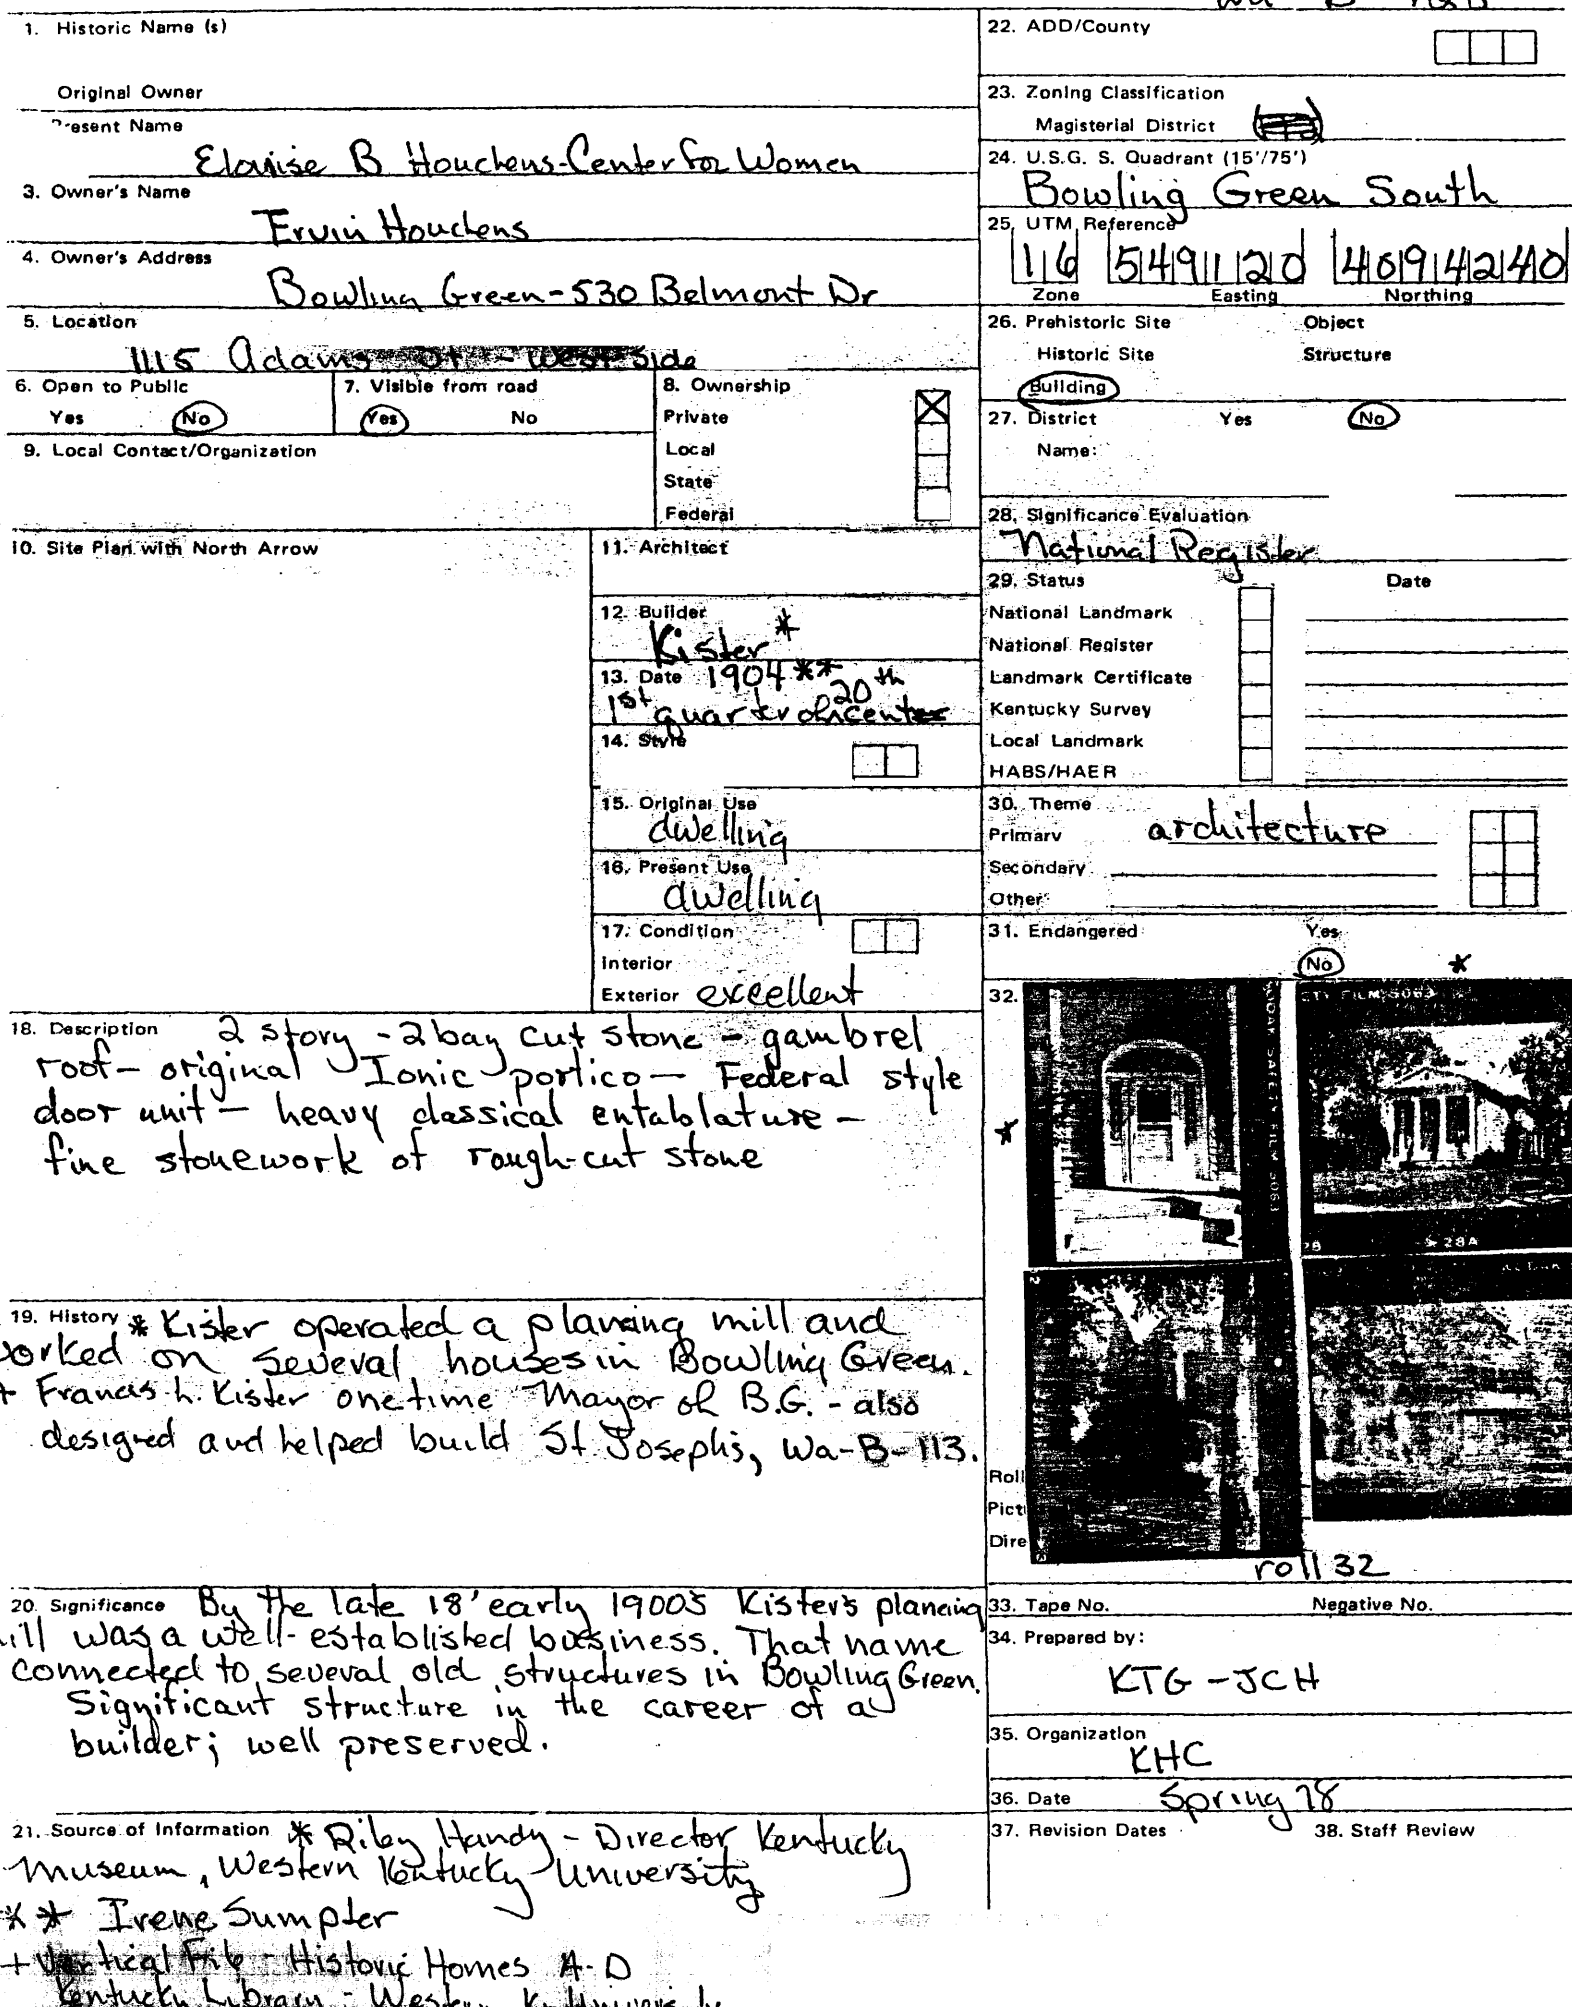 1. Historic Name (s)
Original Owner
Present Name
Elouise B Houchens-Center for Women
3. Owner's Name
Ervin Houchens
4. Owner's Address
Bowling Green-530 Belmont Dr
5. Location
1115 Adams St. - West Side
6. Open to Public
Yes No
7. Visible from road
Yes No
8. Ownership
Private
Local
State
Federal
9. Local Contact/Organization
10. Site Plan with North Arrow
11. Architect
12. Builder
Kister *
13. Date 1904 **
1st quarter of 20th cent
14. Style
15. Original Use
dwelling
16. Present Use
dwelling
17. Condition
Interior
Exterior excellent
18. Description 2 story - 2 bay cut stone - gambrel
roof - original Ionic portico - Federal style
door unit - heavy classical entablature -
fine stonework of rough-cut stone
19. History * Kister operated a planing mill and
worked on several houses in Bowling Green.
+ Francis L. Kister onetime Mayor of B.G. - also
designed and helped build St. Joseph's, Wa-B-113.
20. Significance By the late 18' early 1900s Kister's planing
mill was a well-established business. That name
connected to several old structures in Bowling Green.
Significant structure in the career of a
builder; well preserved.
21. Source of Information * Riley Handy - Director Kentucky
Museum, Western Kentucky University
** Irene Sumpter
+ Vertical File - Historic Homes A-D
Kentucky Library - Western Ky University
22. ADD/County
23. Zoning Classification
Magisterial District
24. U.S.G. S. Quadrant (15'/75')
Bowling Green South
25. UTM Reference
16 549120 4094240
Zone Easting Northing
26. Prehistoric Site Object
Historic Site Structure
Building
27. District Yes No
Name:
28. Significance Evaluation
National Register
29. Status Date
National Landmark
National Register
Landmark Certificate
Kentucky Survey
Local Landmark
HABS/HAER
30. Theme
Primary architecture
Secondary
Other
31. Endangered Yes
No *
32.
*
SAFETY FILM 5063
28A
Roll
Pict
Dire
roll 32
33. Tape No. Negative No.
34. Prepared by:
KTG - JCH
35. Organization
KHC
36. Date Spring 78
37. Revision Dates 38. Staff Review